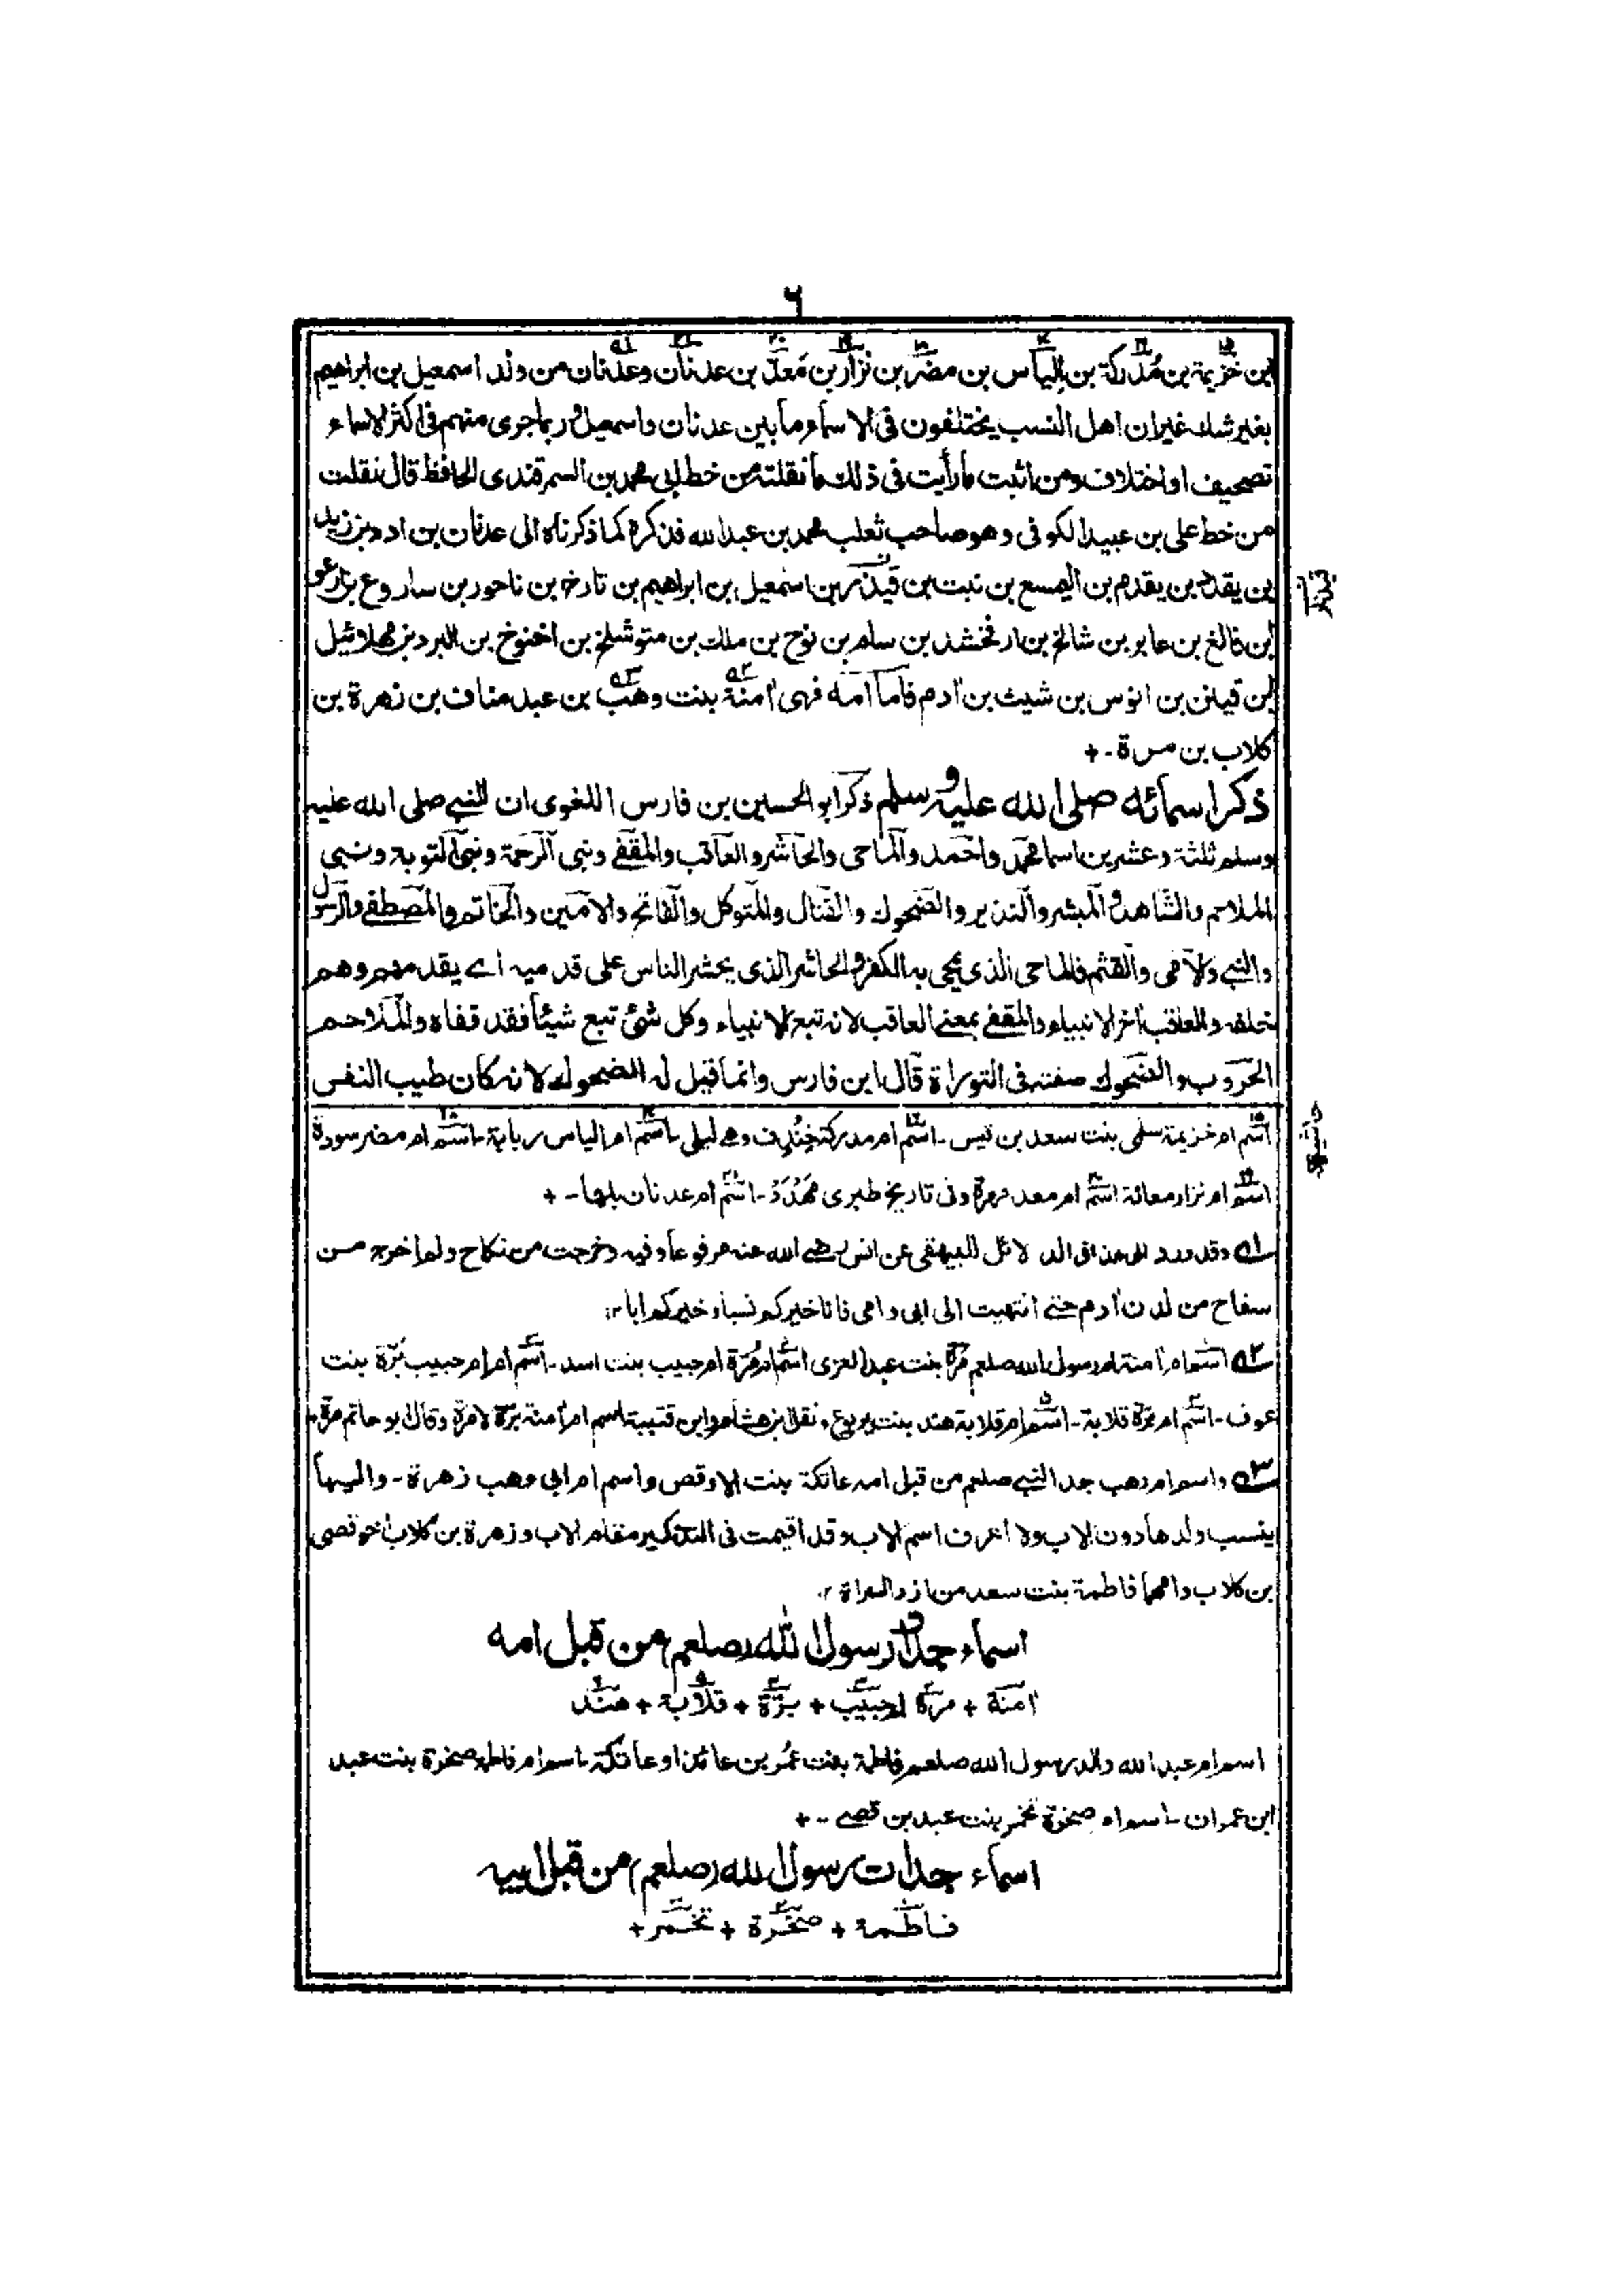 ٦
ابن خزيمة بن مُدركة بن إلياس بن مضر بن نزار بن مَعدّ بن عدنان وعدنان من ولد اسمعيل بن ابراهيم
بغير شك غير ان اهل النسب يختلفون فى الاسماء ما بين عدنان واسمعيل وربما جرى منهم فى اكثر الاسماء
تصحيف او اختلاف ومن اثبت ما رأيت فى ذلك ما نقلته من خط ابى محمد بن السمرقندى الحافظ قال نقلت
من خط على بن عبيد الكوفى وهو صاحب ثعلب محمد بن عبد الله فذكره كما ذكرناه الى عدنان بن ادد بن زيد
بن يقدد بن يقدم بن اليمسع بن نبت بن قيذر بن اسمعيل بن ابراهيم بن تارخ بن ناحور بن ساروع بن ارعو
ابن فالغ بن عابر بن شالخ بن ارفخشد بن سام بن نوح بن ملك بن متوشلخ بن اخنوخ بن اليرد بن مهلائيل
ابن قينن بن انوس بن شيث بن ادم فاما امه فهى امنة بنت وهب بن عبد مناف بن زهرة بن
كلاب بن مرة ـ +
ذكر اسمائه صلى الله عليه وسلم ذكر ابو الحسين بن فارس اللغوى ان للنبي صلى الله عليه
وسلم ثلثة وعشرين اسما محمد واحمد والماحى والحاشر والعاقب والمقفے ونبى الرحمة ونبى التوبة ونبي
الملاحم والشاهد والمبشر والنذير والضحوك والقتال والمتوكل والفاتح والامين والخاتم والمصطفے والرسول
والنبي والامى والقثم فالماحى الذى يمحى به الكفر والحاشر الذى يحشر الناس على قدميه اے يقدمهم وهم
خلفه والعاقب اخر الانبياء والمقفے بمعنى العاقب لانه تبع الانبياء وكل شئ تبع شيئاً فقد قفاه والملاحم
الحروب والضحوك صفته فى التوراة قال ابن فارس وانما قيل له الضحوك لانه كان طيب النفس
اسم ام خزيمة سلمى بنت سعد بن قيس ـ اسم ام مدركة خِندِف وهے ليلى ـ اسم ام الياس ربابة ـ اسم ام مضر سودة
اسم ام نزار معانة اسم ام معد مهرة وفى تاريخ طبرى مَهْدَدُ ـ اسم ام عدنان بلها ـ +
ا۵ وقد ورد فى الدلائل للبيهقى عن انس رضے الله عنه مرفوعاً وفيه وخرجت من نكاح ولم اخرج من
سفاح من لدن ادم حتى انتهيت الى ابى وامى فانا خيركم نسبا وخيركم ابا ١٢
٢۵ اسم ام امنة ام رسول الله صلعم بَرّة بنت عبد العزى اسم ام بُرّة ام حبيب بنت اسد ـ اسم ام ام حبيب بَرّة بنت
عوف ـ اسم ام برّة قلابة ـ اسم ام قلابة هند بنت يربوع ونقل ابن هشام وابن قتيبة اسم ام امنة برّة لامرة وقال ابو حاتم مرة
٣۵ واسم ام وهب جد النبي صلعم من قبل امه عاتكة بنت الاوقص واسم ام ابى وهب زهرة ـ واليها
ينسب ولدها دون الاب ولا اعرف اسم الاب وقد اقيمت فى التذكير مقام الاب وزهرة بن كلاب اخو قصى
بن كلاب وامهما فاطمة بنت سعد من ازد السراة ١٢
اسماء جدات رسول الله (صلعم) من قبل امه
امنة + مرة ام حبيب + برّة + قلابة + هند
اسم ام عبد الله والد رسول الله صلعم فاطمة بنت عمُر بن عائذ او عاتكة ـ اسم ام فاطمة صخرة بنت عبد
ابن عمران ـ اسم ام صخرة تخمر بنت عبد بن قصے ـ +
اسماء جدات رسول الله (صلعم) من قبل ابيه
فاطمة + صخرة + تخمر +